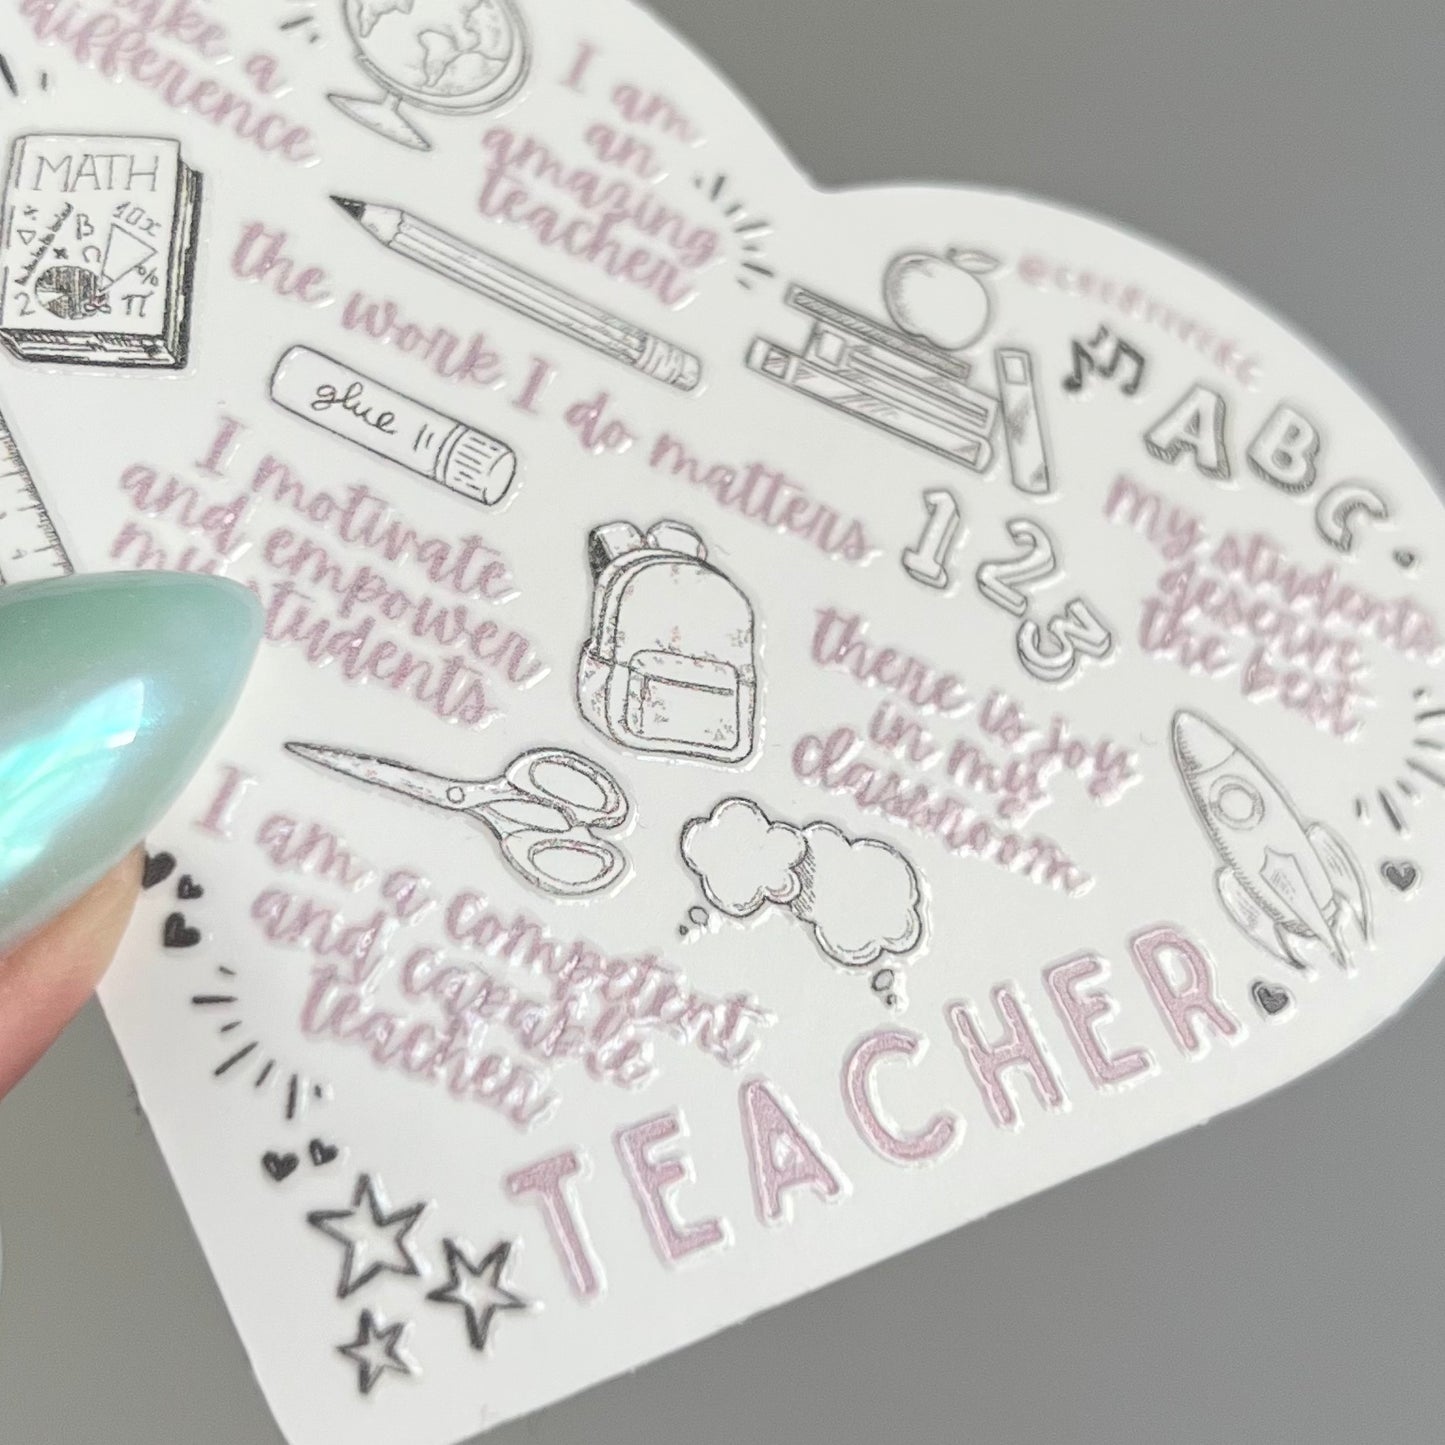 make a
difference
I am
an
amazing
teacher
MATH
10x
β
Ω
%
2
π
the work I do matters
glue
A B C
1 2 3
I motivate
and empower
my students
my students
deserve
the best
there is joy
in my
classroom
I am a competent
and capable
teacher
TEACHER